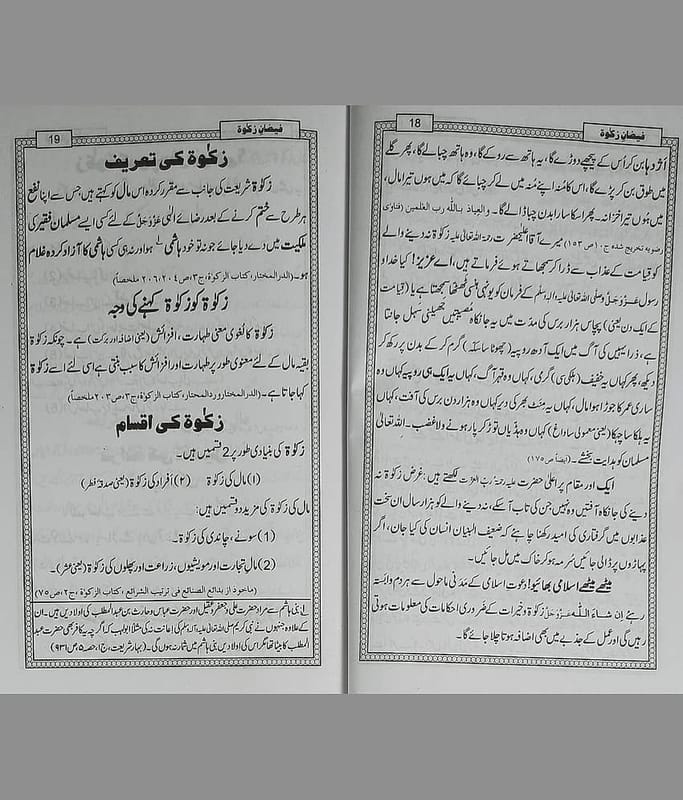 فیضانِ زکوٰۃ
18
اژدہا بن کر اُس کے پیچھے دوڑے گا، یہ ہاتھ سے روکے گا، وہ ہاتھ چبا لے گا، پھر گلے
میں طوق بن کر پڑے گا، اس کا مُنہ اپنے مُنہ میں لے کر چبائے گا کہ میں ہوں تیرا مال،
میں ہوں تیرا خزانہ۔ پھر اس کا سارا بدن چبا ڈالے گا۔ والعیاذ باللہ رب العٰلمین (فتاوی
رضویہ تخریج شدہ ج۱۰ ص ۱۵۳) میرے آقا اعلیٰحضرت رحمۃ اللہ تعالیٰ علیہ زکوٰۃ نہ دینے والے
کو قیامت کے عذاب سے ڈرا کر سمجھاتے ہوئے فرماتے ہیں، اے عزیز! کیا خدا و
رسول عزوجل و صلی اللہ تعالیٰ علیہ والہ وسلم کے فرمان کو یونہی ہنسی ٹھٹھا سمجھتا ہے یا (قیامت
کے ایک دن یعنی) پچاس ہزار برس کی مدت میں یہ جانکاہ مصیبتیں جھیلنی سہل جانتا
ہے، ذرا یہیں کی آگ میں ایک آدھ روپیہ (چھوٹا سا سکہ) گرم کر کے بدن پر رکھ کر
دیکھ، پھر کہاں یہ خفیف (ہلکی سی) گرمی، کہاں وہ قہر آگ، کہاں یہ ایک ہی روپیہ کہاں وہ
ساری عمر کا جوڑا ہوا مال، کہاں یہ منٹ بھر کی دیر کہاں وہ ہزار دن برس کی آفت، کہاں
یہ ہلکا سا چہکا (یعنی معمولی سا داغ) کہاں وہ ہڈیاں توڑ کر پار ہونے والا غضب۔ اللہ تعالیٰ
مسلمان کو ہدایت بخشے۔ (ایضاً ص ۱۷۵)
ایک اور مقام پر اعلیٰ حضرت علیہ رحمۃ رب العزت لکھتے ہیں: غرض زکوٰۃ نہ
دینے کی جانکاہ آفتیں وہ نہیں جن کی تاب آ سکے، نہ دینے والے کو ہزار سال ان سخت
عذابوں میں گرفتاری کی امید رکھنا چاہئے کہ ضعیف البنیان انسان کی کیا جان، اگر
پہاڑوں پر ڈالی جائیں سرمہ ہو کر خاک میں مل جائیں۔
میٹھے میٹھے اسلامی بھائیو! دعوتِ اسلامی کے مدنی ماحول سے ہر دم وابستہ
رہئے اِن شاءَ اللہ عزوجل زکوٰۃ و خیرات کے ضروری احکامات کی معلومات ہوتی
رہیں گی اور عمل کے جذبے میں بھی اضافہ ہوتا چلا جائے گا۔
فیضانِ زکوٰۃ
19
زکوٰۃ کی تعریف
زکوٰۃ شریعت کی جانب سے مقرر کردہ اس مال کو کہتے ہیں جس سے اپنا نفع
ہر طرح سے ختم کرنے کے بعد رضائے الٰہی عزوجل کے لئے کسی ایسے مسلمان فقیر کی
ملکیت میں دے دیا جائے جو نہ تو خود ہاشمی ۱ ہو اور نہ ہی کسی ہاشمی کا آزاد کردہ غلام
ہو۔ (الدرالمختار، کتاب الزکوٰۃ، ج۳، ص۲۰۴، ۲۰۶ ملخصاً)
زکوٰۃ کو زکوٰۃ کہنے کی وجہ
زکوٰۃ کا لغوی معنی طہارت، افزائش (یعنی اضافہ اور برکت) ہے۔ چونکہ زکوٰۃ
بقیہ مال کے لئے معنوی طور پر طہارت اور افزائش کا سبب بنتی ہے اسی لئے اسے زکوٰۃ
کہا جاتا ہے۔ (الدرالمختار و ردالمحتار، کتاب الزکوٰۃ، ج۳، ص۲۰۳ ملخصاً)
زکوٰۃ کی اقسام
زکوٰۃ کی بنیادی طور پر 2 قسمیں ہیں۔
(۱) مال کی زکوٰۃ (۲) افراد کی زکوٰۃ (یعنی صدقہ فطر)
مال کی زکوٰۃ کی مزید دو قسمیں ہیں:
(1) سونے، چاندی کی زکوٰۃ۔
(2) مالِ تجارت اور مویشیوں، زراعت اور پھلوں کی زکوٰۃ (یعنی عشر)۔
(ماخوذ از بدائع الصنائع فی ترتیب الشرائع، کتاب الزکوٰۃ، ج۲، ص۷۵)
۱۔ بنی ہاشم سے مراد حضرت علی و جعفر و عقیل اور حضرت عباس و حارث بن عبدالمطلب کی اولادیں ہیں۔ ان
کے علاوہ جنہوں نے نبی کریم صلی اللہ تعالیٰ علیہ والہ وسلم کی اعانت نہ کی مثلاً ابولہب کہ اگرچہ یہ کافر بھی حضرت عبد
المطلب کا بیٹا تھا مگر اس کی اولادیں بنی ہاشم میں شمار نہ ہوں گی۔ (بہار شریعت، ج۱، حصہ ۵، ص ۹۳۱)